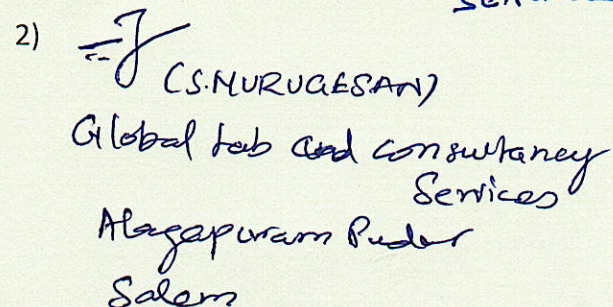 2)
(S.MURUGESAN)
Global Lab and consultancy
Services
Alagapuram Pudur
Salem